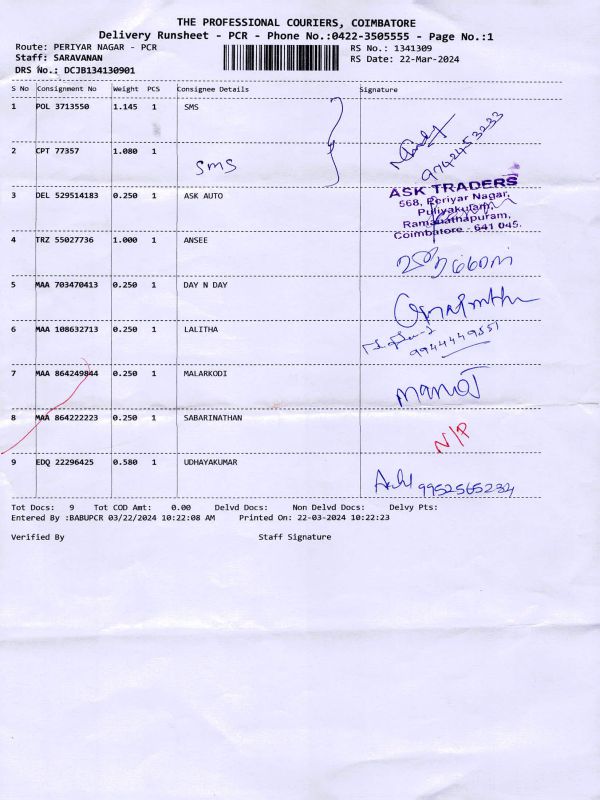 THE PROFESSIONAL COURIERS, COIMBATORE
Delivery Runsheet - PCR - Phone No.:0422-3505555 - Page No.:1
Route: PERIYAR NAGAR - PCR RS No.: 1341309
Staff: SARAVANAN RS Date: 22-Mar-2024
DRS No.: DCJB134130901
S No Consignment No Weight PCS Consignee Details Signature
1 POL 3713550 1.145 1 SMS
9742453233
2 CPT 77357 1.080 1 SMS
3 DEL 529514183 0.250 1 ASK AUTO
ASK TRADERS
568, Periyar Nagar,
Puliyakulam,
Ramanathapuram,
Coimbatore - 641 045.
4 TRZ 55027736 1.000 1 ANSEE
5 MAA 703470413 0.250 1 DAY N DAY
6 MAA 108632713 0.250 1 LALITHA
9944449551
7 MAA 864249844 0.250 1 MALARKODI Manoj
8 MAA 864222223 0.250 1 SABARINATHAN N/P
9 EDQ 22296425 0.580 1 UDHAYAKUMAR 9952565234
Tot Docs: 9 Tot COD Amt: 0.00 Delvd Docs: Non Delvd Docs: Delvy Pts:
Entered By :BABUPCR 03/22/2024 10:22:08 AM Printed On: 22-03-2024 10:22:23
Verified By Staff Signature